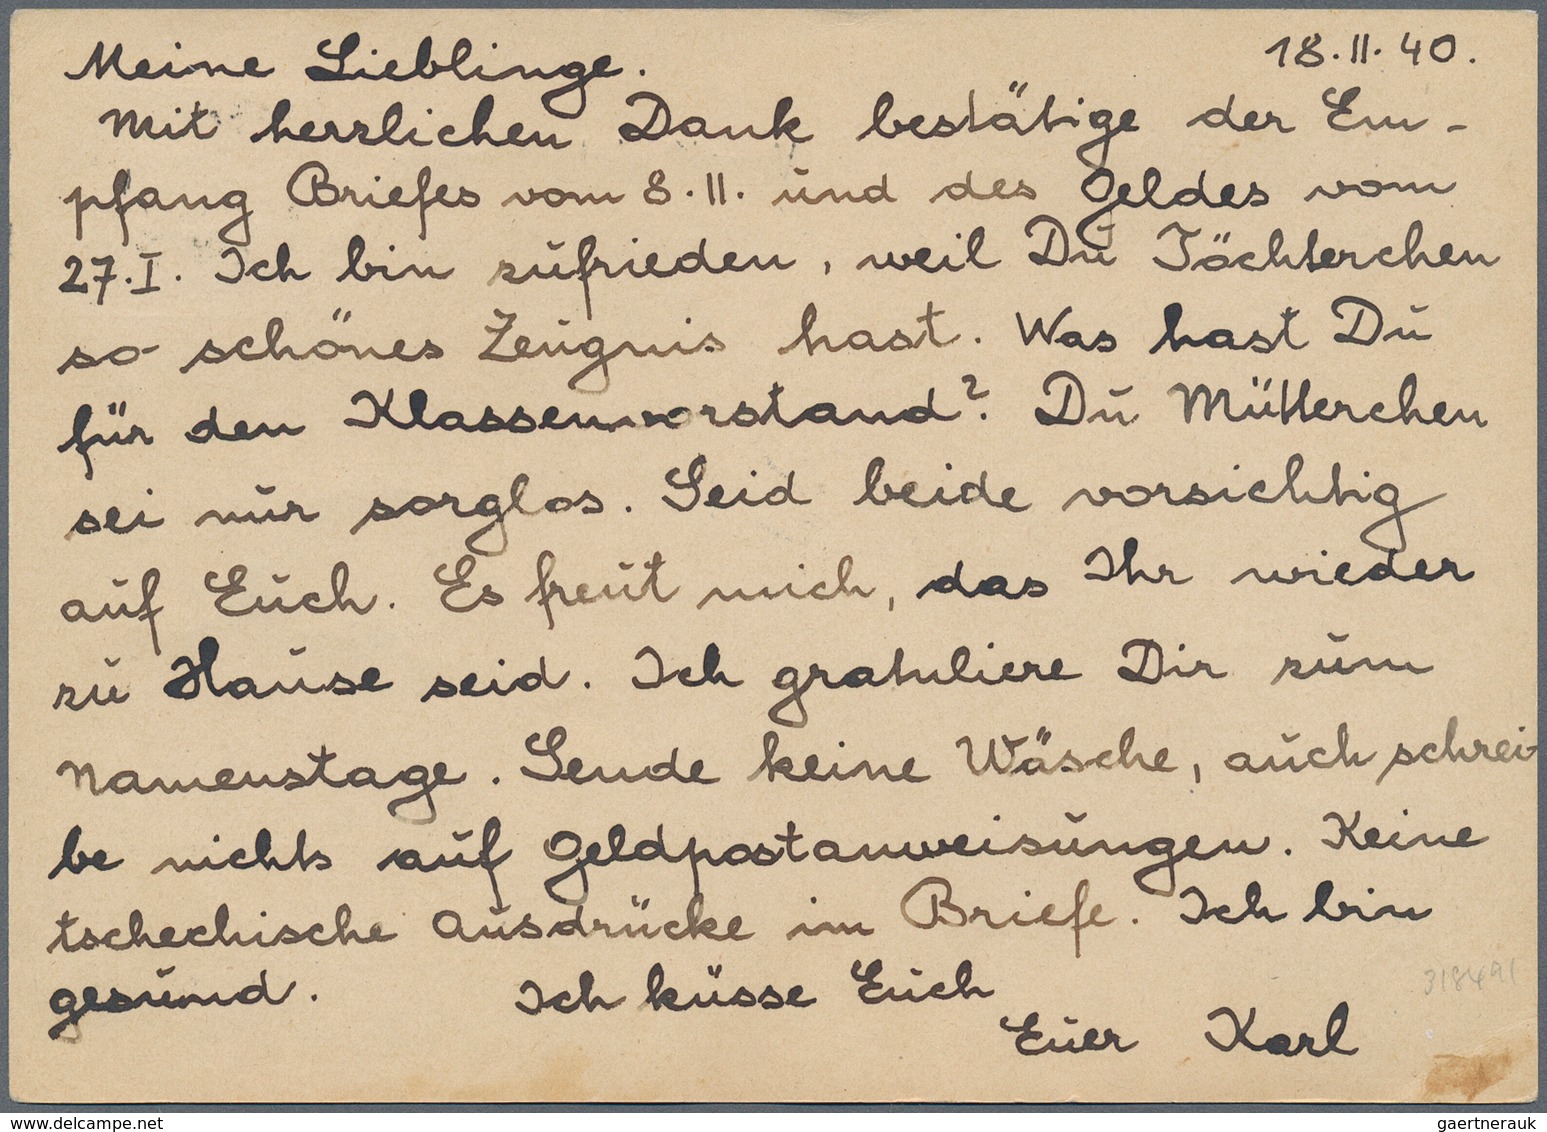 18.II.40.
Meine Lieblinge.
Mit herrlichen Dank bestätige der Em-
pfang Briefes vom 8.II. und des Geldes vom
27.I. Ich bin zufrieden, weil Du Töchterchen
so schönes Zeugnis hast. Was hast Du
für den Klassenvorstand? Du Mütterchen
sei nur sorglos. Seid beide vorsichtig
auf Euch. Es freut mich, das Ihr wieder
zu Hause seid. Ich gratuliere Dir zum
Namenstage. Sende keine Wäsche, auch schrei-
be nichts auf Geldpostanweisungen. Keine
tschechische Ausdrücke im Briefe. Ich bin
gesund. Ich küsse Euch
Euer Karl
318491
www.delcampe.net
gaertnerauk